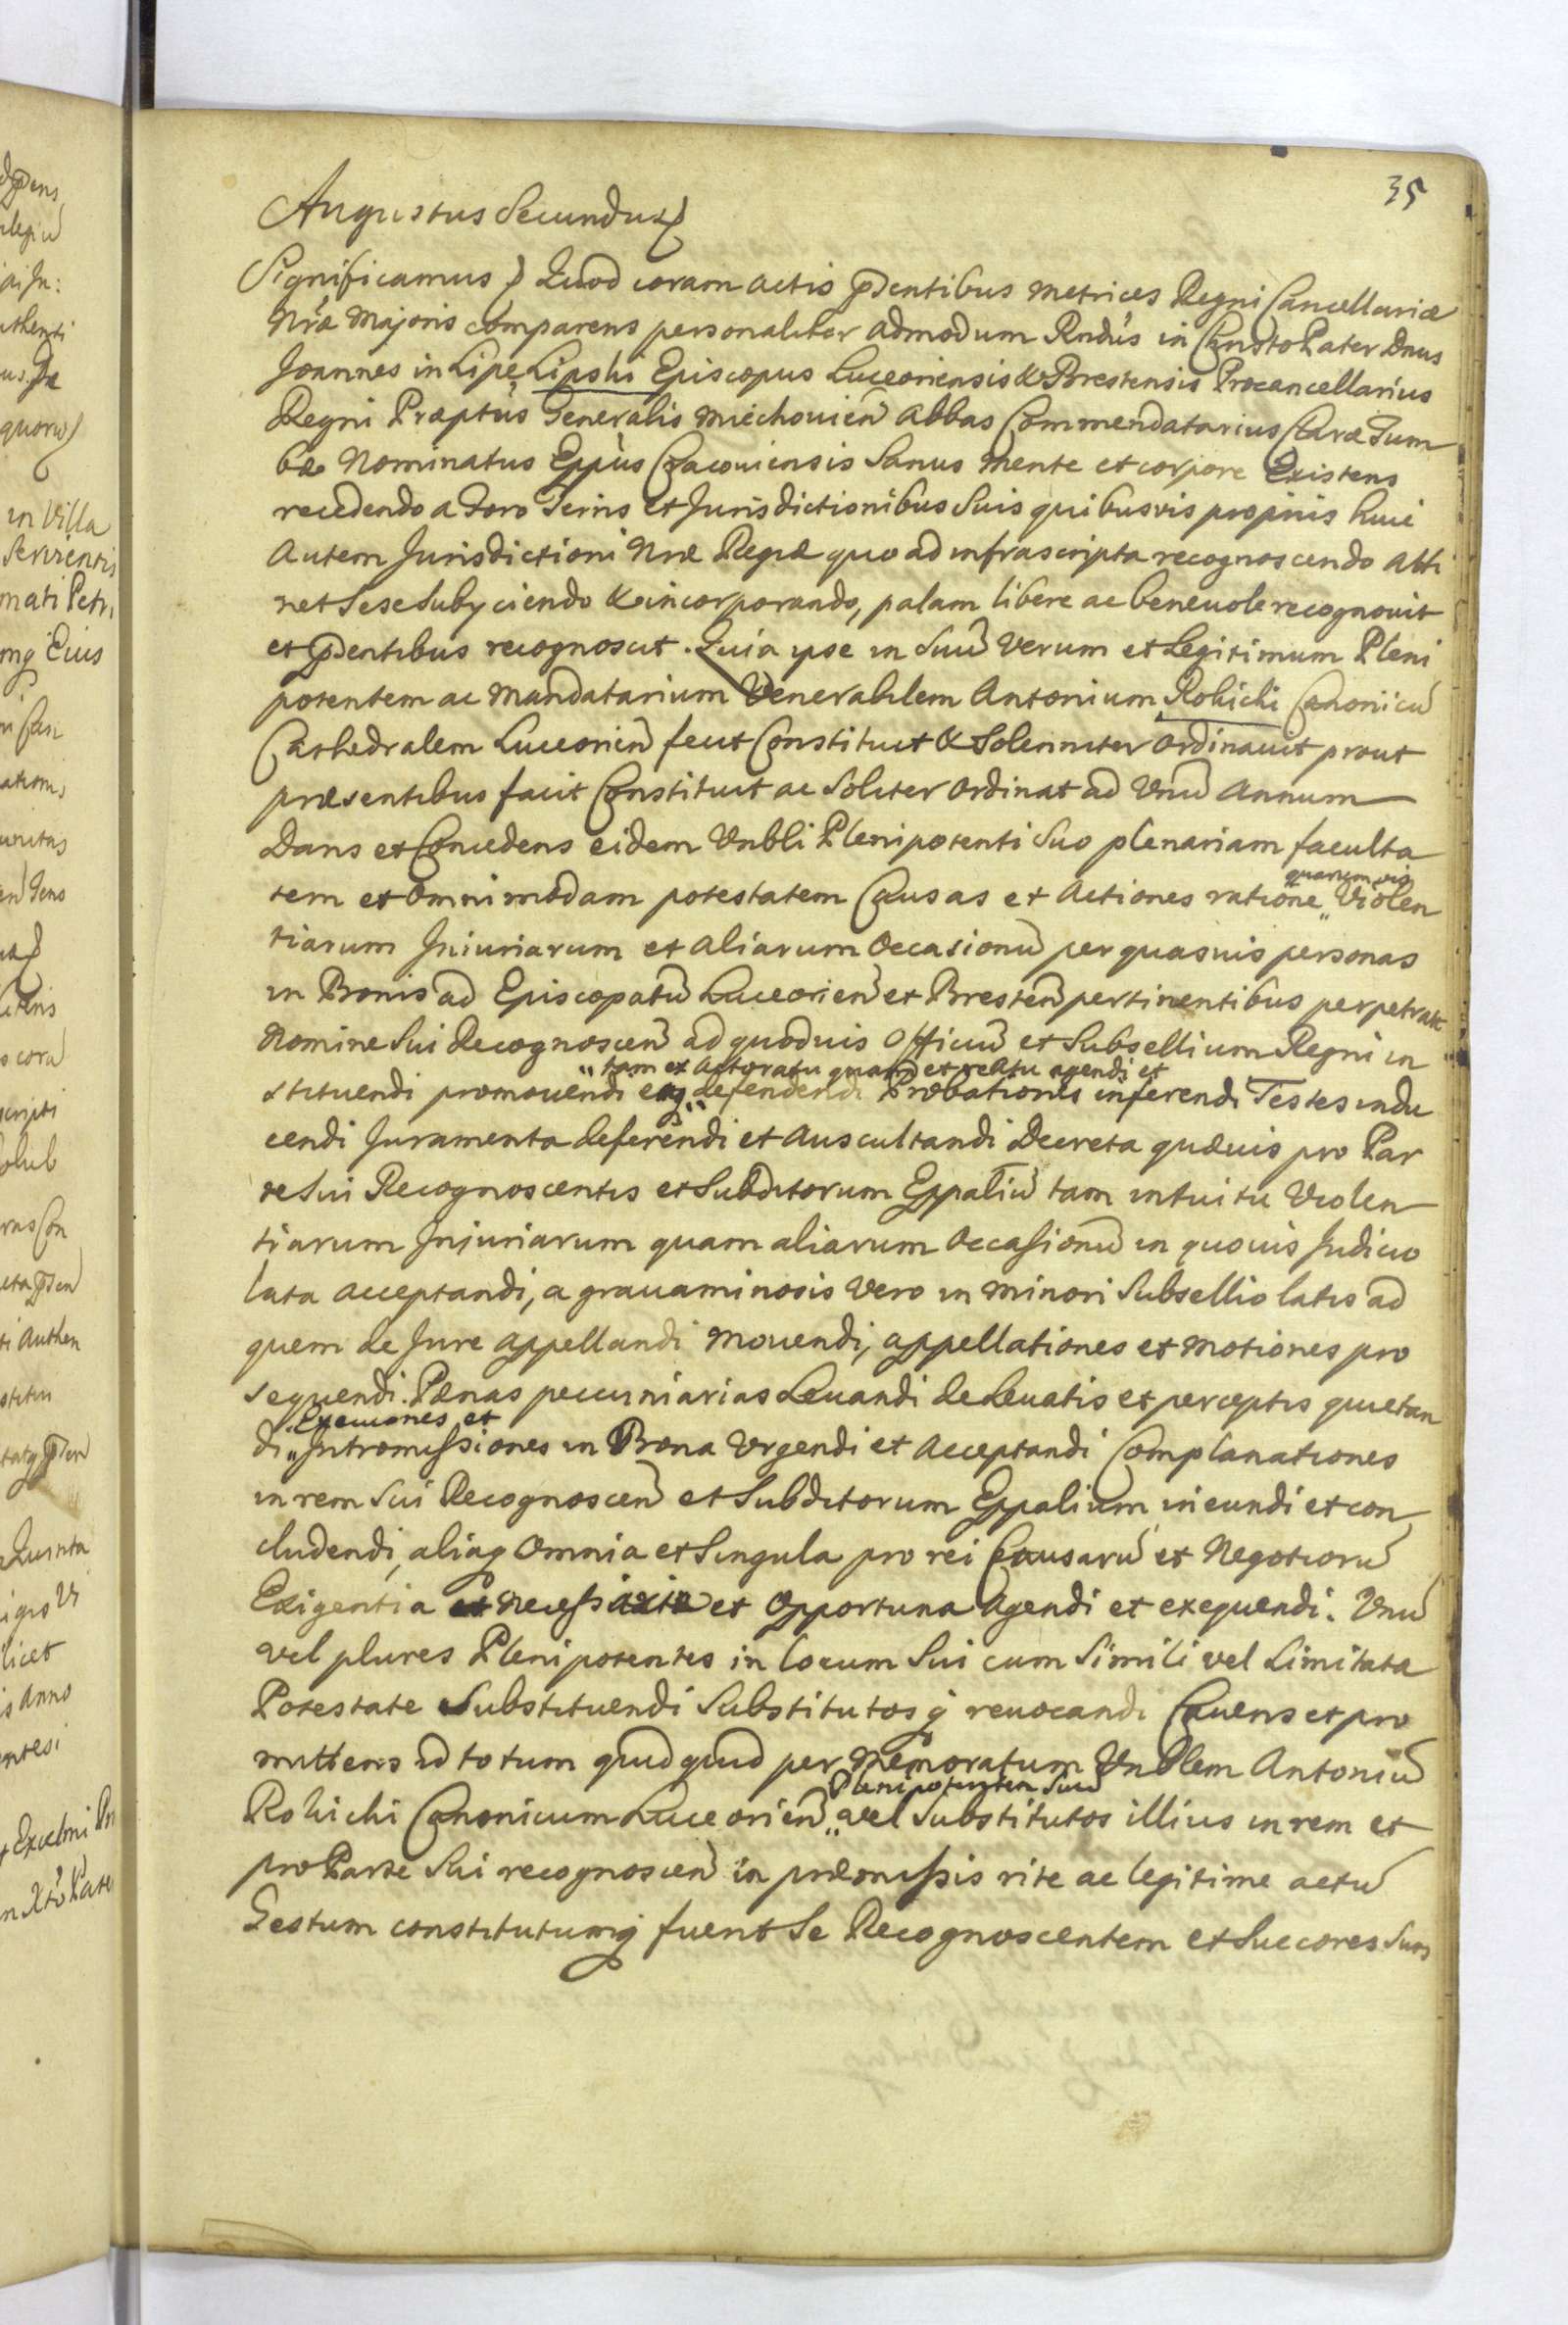 35
Augustus Secundus
Significamus Quod coram actis pñdentibus Metrices Regni Cancellariæ
Nræ Majoris comparens personaliter Admodum Rndus in Christo Pater Dnus
Joannes in Lipe Lipski Episcopus Luceoriensis & Brestensis Procancellarius
Regni Præptus Generalis Miechouien̄ Abbas Commendatarius Claræ Tum
bæ Nominatus Eppus Cracouiensis Sanus Mente et corpore Existens
recedendo a Foro Terris et Jurisdictionibus Suis quibusvis proprijs huic
Autem Jurisdictioni Nræ Regiæ quo ad infrascripta recognoscendo Atti
net Sese Subyciendo & incorporando, palam libere ac beneuole recognouit
et pñdentibus recognoscit. Quia ipse in Suū Verum et Legitimum Pleni
potentem ac Mandatarium Venerabilem Antonium Rokicki Canonicū
Cathedralem Luceorien̄ fecit Constituit & Solenniter Ordinauit prout
præsentibus facit Constituit ac Soliter Ordinat ad Unū Annum
Dans et Concedens eidem Vnbli Plenipotenti Suo plenariam faculta
tem et Omnimodam potestatem Causas et Actiones ratione quarumvis Violen
tiarum Iniuriarum et Aliarum Occasionū per quasuis personas
in Bonis ad Episcopatū Luceorien̄ et Bresten̄ pertinentibus perpetrat
Nomine Sui Recognoscen̄ ad quoduis Officiū et Subsellium Regni in
stituendi promouendi easq tam ex Actoratu quam et reatu agendi et defendendi Probationes inferendi Testes indu
cendi Juramenta deferendi et Auscultandi Decreta quæuis pro Par
te Sui Recognoscentis et Subditorum Eppaliū tam intuitu Violen
tiarum Injuriarum quam aliarum Occasionū in quouis Judicio
lata acceptandi, a grauaminosis Vero in Minori Subsellio latis ad
quem de Jure appellandi Mouendi, appellationes et Motiones pro
sequendi. Pænas pecuniarias Leuandi de Leuatis et perceptis quietan
di Executiones et Intromissiones in Bona Urgendi et Acceptandi Complanationes
in rem Sui Recognoscen̄ et Subditorum Eppalium ineundi et con
cludendi, aliaq Omnia et Singula pro rei Causarū et Negotiorū
Exigentia et Necessaria et Opportuna Agendi et exequendi. Unū
vel plures Plenipotentes in locum Sui cum Simili vel Limitata
Potestate Substituendi Substitutosq reuocandi Cauens et pro
mittens id totum quidquid per Memoratum VnBlem Antoniū
Rokicki Canonicum Luceorien̄ Plenipotenten Suū vel Substitutos illius in rem et
pro Parte Sui recognoscen̄ in præmissis rite ac legitime actū
Gestum constitutumq fuerit Se Recognoscentem et Succores Suos